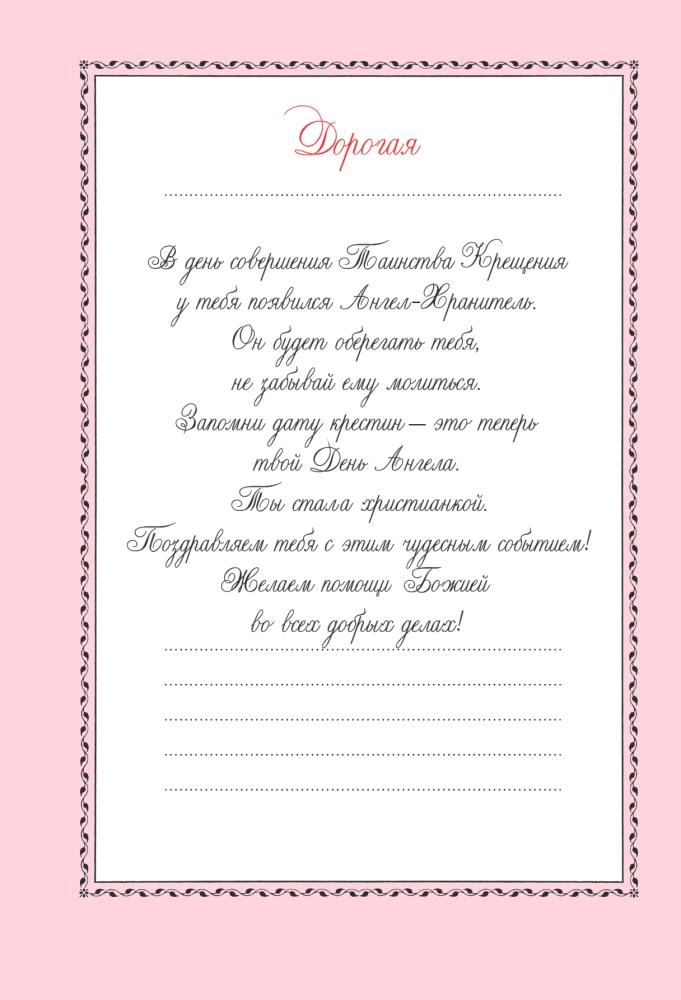 Дорогая
В день совершения Таинства Крещения
у тебя появился Ангел-Хранитель.
Он будет оберегать тебя,
не забывай ему молиться.
Запомни дату крестин — это теперь
твой День Ангела.
Ты стала христианкой.
Поздравляем тебя с этим чудесным событием!
Желаем помощи Божией
во всех добрых делах!